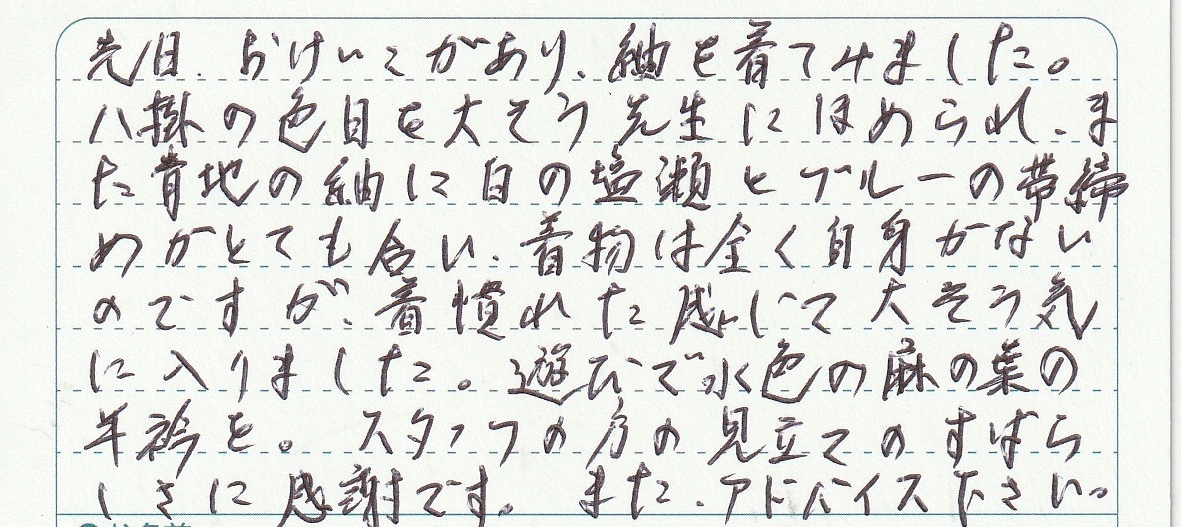 先日、おけいこがあり、紬を着てみました。
八掛の色目を大そう先生にほめられ、ま
た青地の紬に白の塩瀬とブルーの帯締
めがとても合い、着物は全く自身がない
のですが、着慣れた感じにて大そう気
に入りました。遊びで水色の麻の葉の
半衿を。スタッフの方の見立てのすばら
しさに感謝です。また、アドバイス下さい。